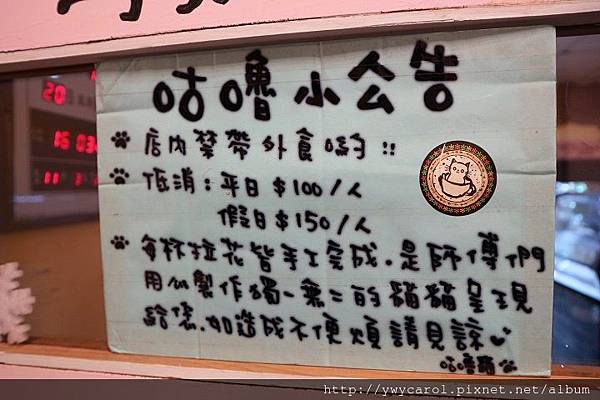 咕嚕小公告
店內禁帶外食喲!!
低消:平日$100/人
假日$150/人
每杯拉花皆手工完成.是師傅們
用心製作獨一無二的貓貓呈現
給您.如造成不便煩請見諒
咕嚕貓
20
16 034
11 3
http://ywycarol.pixnet.net/album